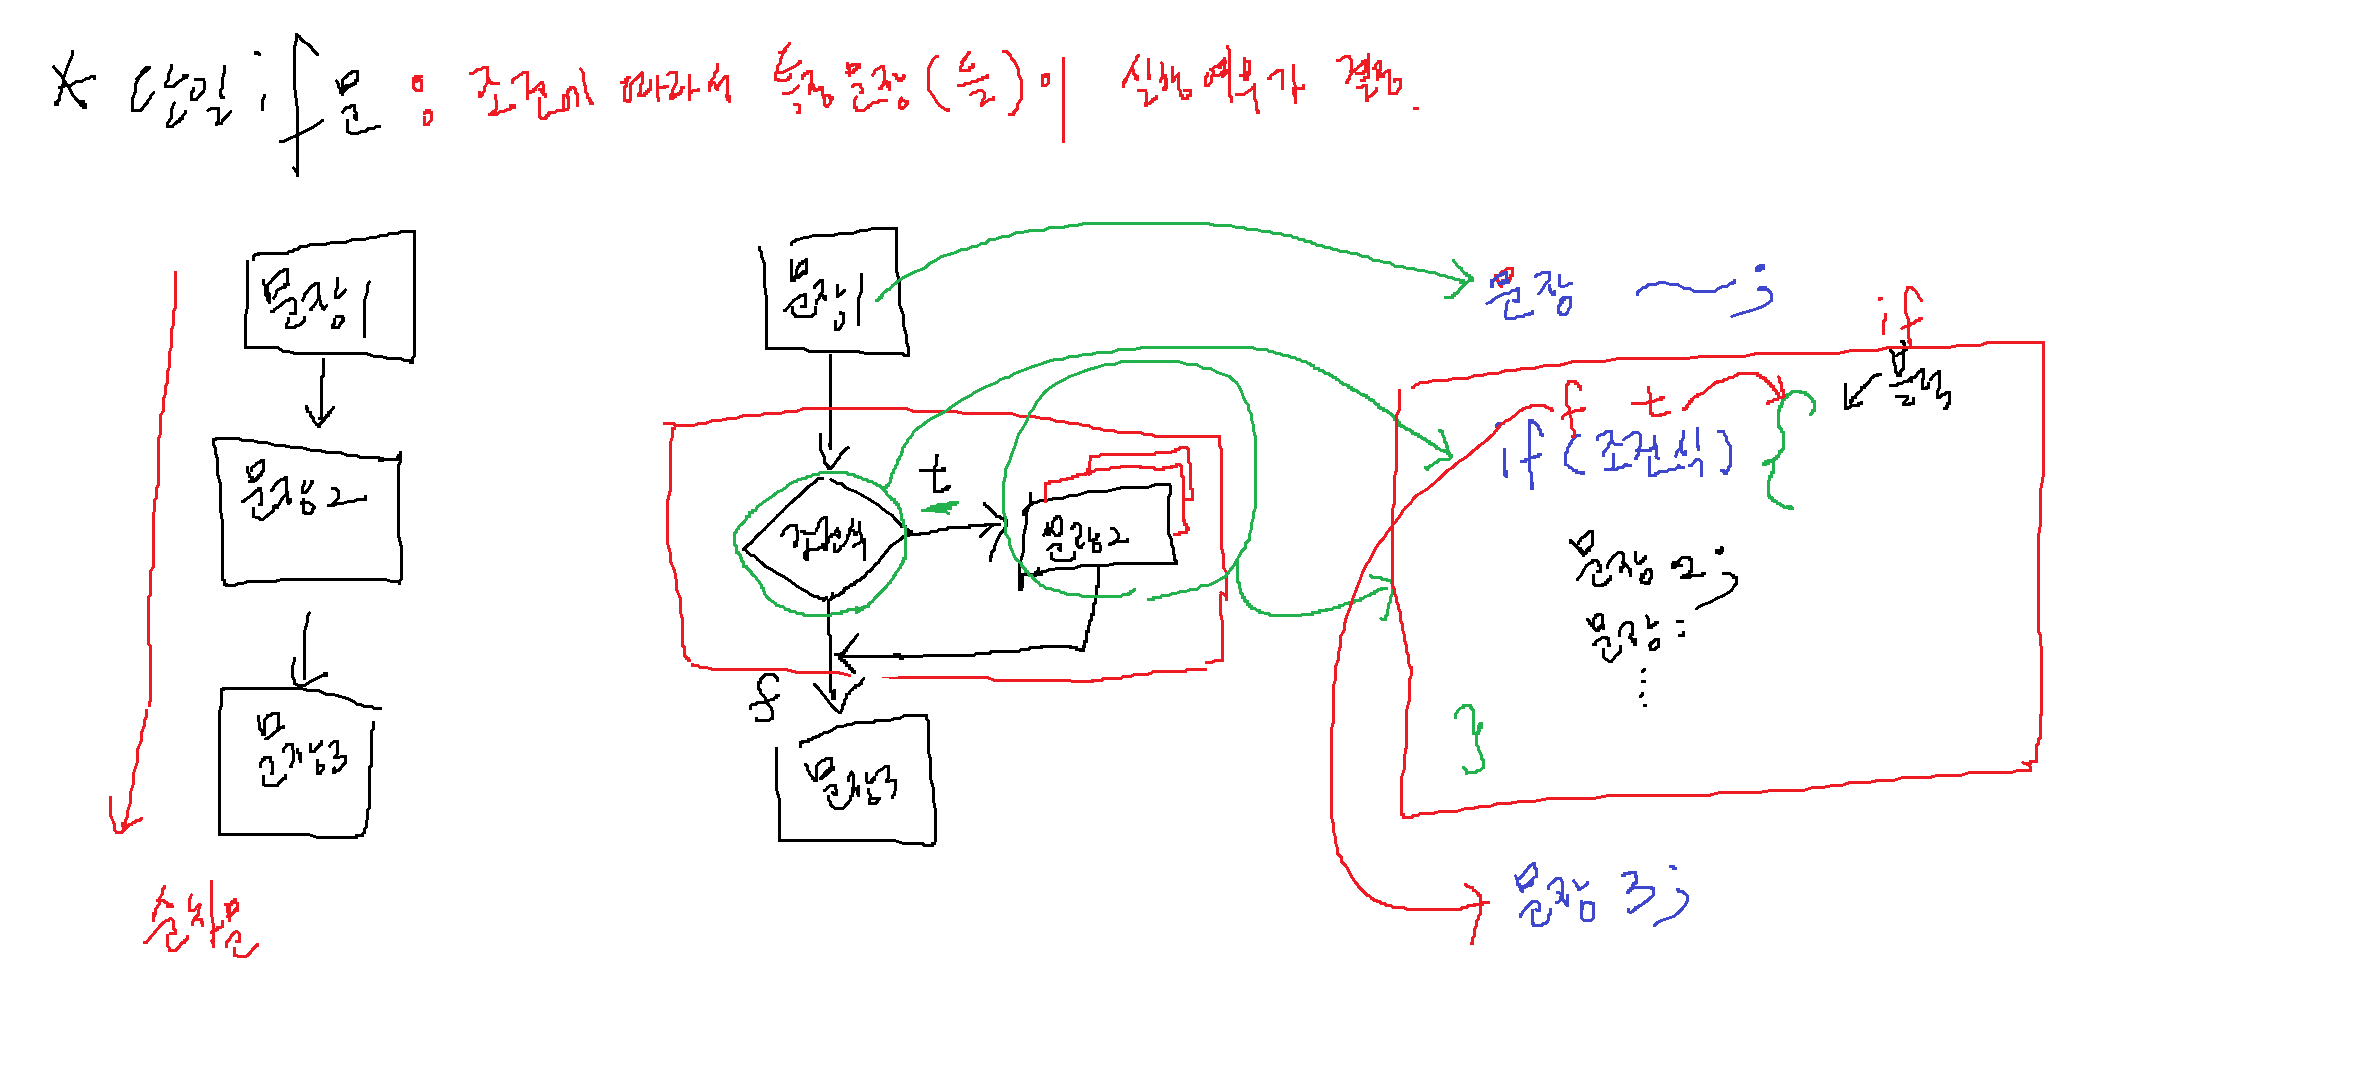 * 단일 if 문 : 조건에 따라서 특정문장(들)이 실행여부가 결정.
문장1
문장2
문장3
순차문
문장1
조건식
t
문장2
f
문장3
문장 ;
if
블록
f t
if(조건식) {
문장2;
문장:
...
}
문장 3;